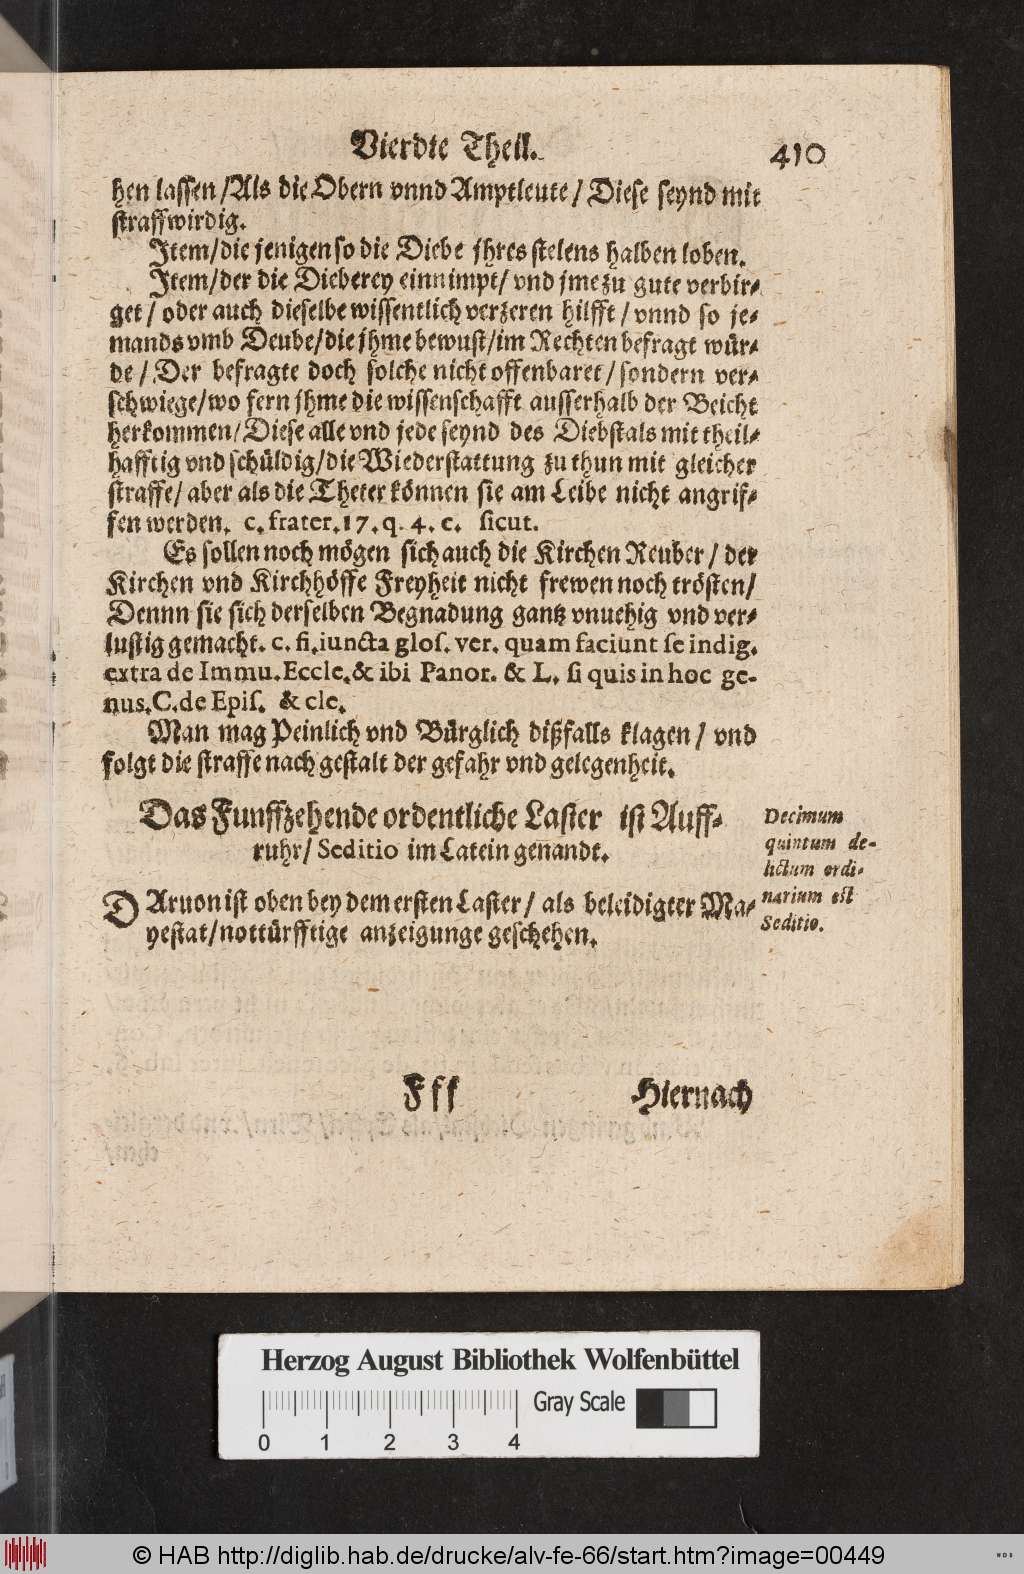 Vierdte Theil. 410
hen lassen / Als die Obern vnnd Amptleute / Diese seynd mit
straffwirdig.
Item / die jenigen so die Diebe jhres stelens halben loben.
Item / der die Dieberey einnimpt / vnd jme zu gute verbir-
get / oder auch dieselbe wissentlich verzeren hilfft / vnnd so je-
mands vmb Deube / die jhme bewust / im Rechten befragt wür-
de / Der befragte doch solche nicht offenbaret / sondern ver-
schwiege / wo fern jhme die wissenschafft ausserhalb der Beicht
herkommen / Diese alle vnd jede seynd des Diebstals mit theil-
hafftig vnd schüldig / die Wiederstattung zu thun mit gleicher
straffe / aber als die Theter können sie am Leibe nicht angrif-
fen werden. c. frater. 17. q. 4. c. sicut.
Es sollen noch mögen sich auch die Kirchen Reuber / der
Kirchen vnd Kirchhöffe Freyheit nicht frewen noch trösten /
Dennn sie sich derselben Begnadung gantz vnuehig vnd ver-
lustig gemacht. c. fi. iuncta glos. ver. quam faciunt se indig.
extra de Immu. Eccle. & ibi Panor. & L. si quis in hoc ge-
nus. C. de Epis. & cle.
Man mag Peinlich vnd Bürglich dißfalls klagen / vnd
folgt die straffe nach gestalt der gefahr vnd gelegenheit.
Das Funffzehende ordentliche Laster ist Auff-
ruhr / Seditio im Latein genandt.
Decimum
quintum de-
lictum ordi-
narium est
Seditio.
DAruon ist oben bey dem ersten Laster / als beleidigter Ma-
yestat / nottürfftige anzeigunge geschehen.
Fff Hiernach
Herzog August Bibliothek Wolfenbüttel
Gray Scale
0 1 2 3 4
© HAB http://diglib.hab.de/drucke/alv-fe-66/start.htm?image=00449